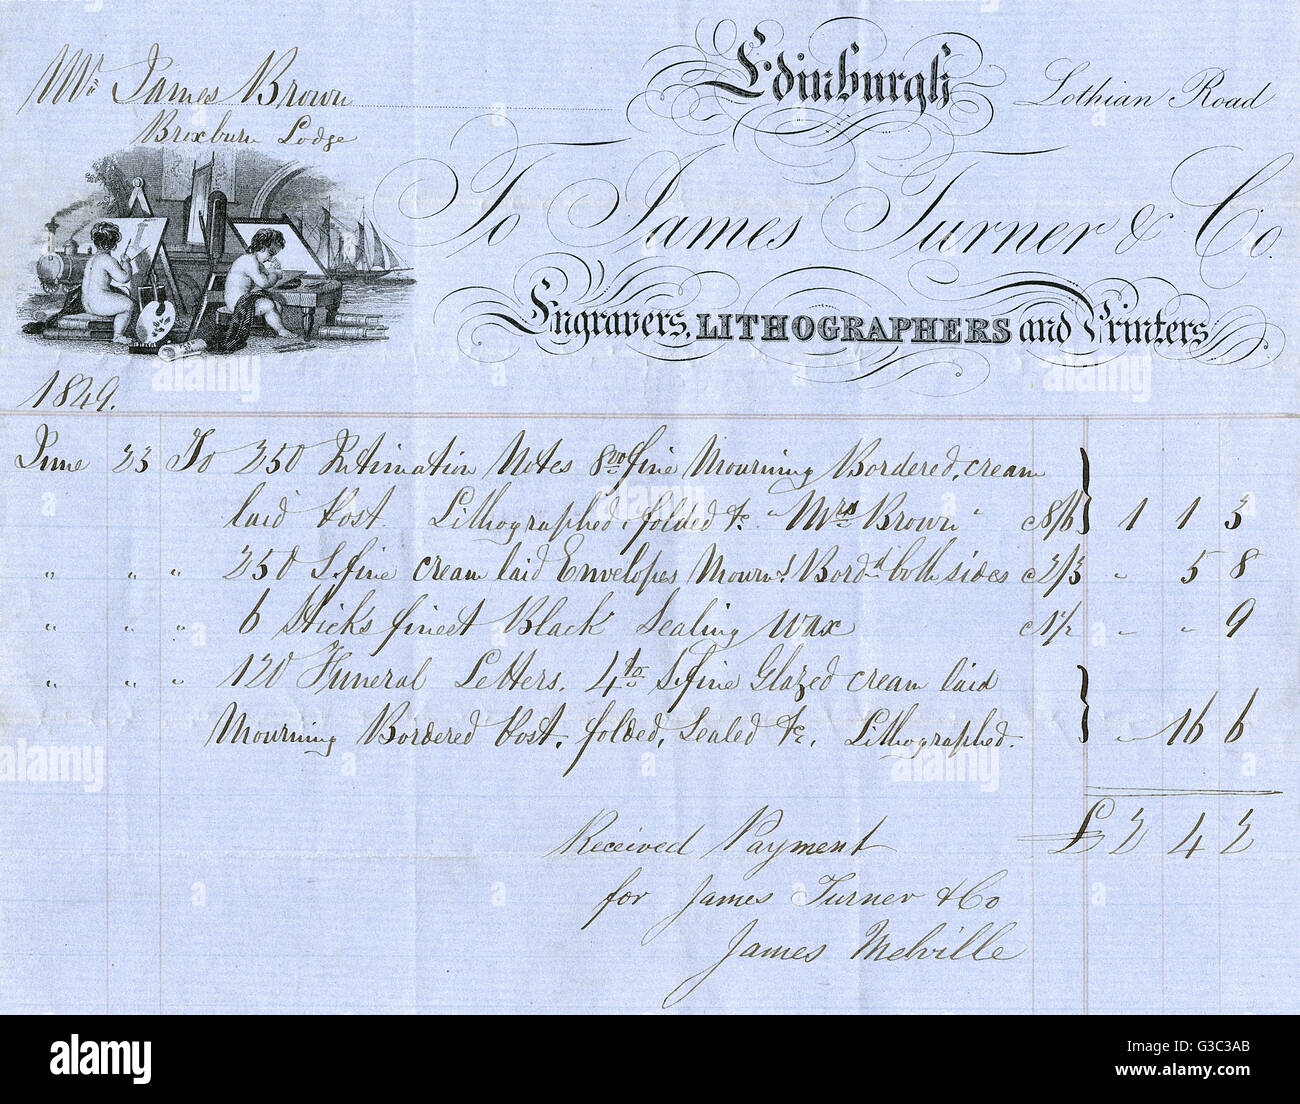 Mr. James Brown
Broxburn Lodge
Edinburgh
Lothian Road
To James Turner & Co.
Engravers, LITHOGRAPHERS and Printers
1849.
June 23 To 250 Intimation Notes 8vo fine Mourning Bordered, cream
laid Post. Lithographed, folded &c. "Mrs Brown" @ 8/6 1 1 3
" " " 250 S.fine cream laid Envelopes Mourng Bordd both sides @ 2/3 " 5 8
" " " 6 Sticks finest Black Sealing Wax @ 1½ " " 9
" " " 120 Funeral Letters. 4to S.fine Glazed cream laid
Mourning Bordered Post, folded, Sealed &c. Lithographed. " 16 6
£ 2 4 2
Received Payment
for James Turner & Co
James Melville
alamy
alamy
alamy
alamy
a
a
a
a
a
alamy
Image ID: G3C3AB
www.alamy.com